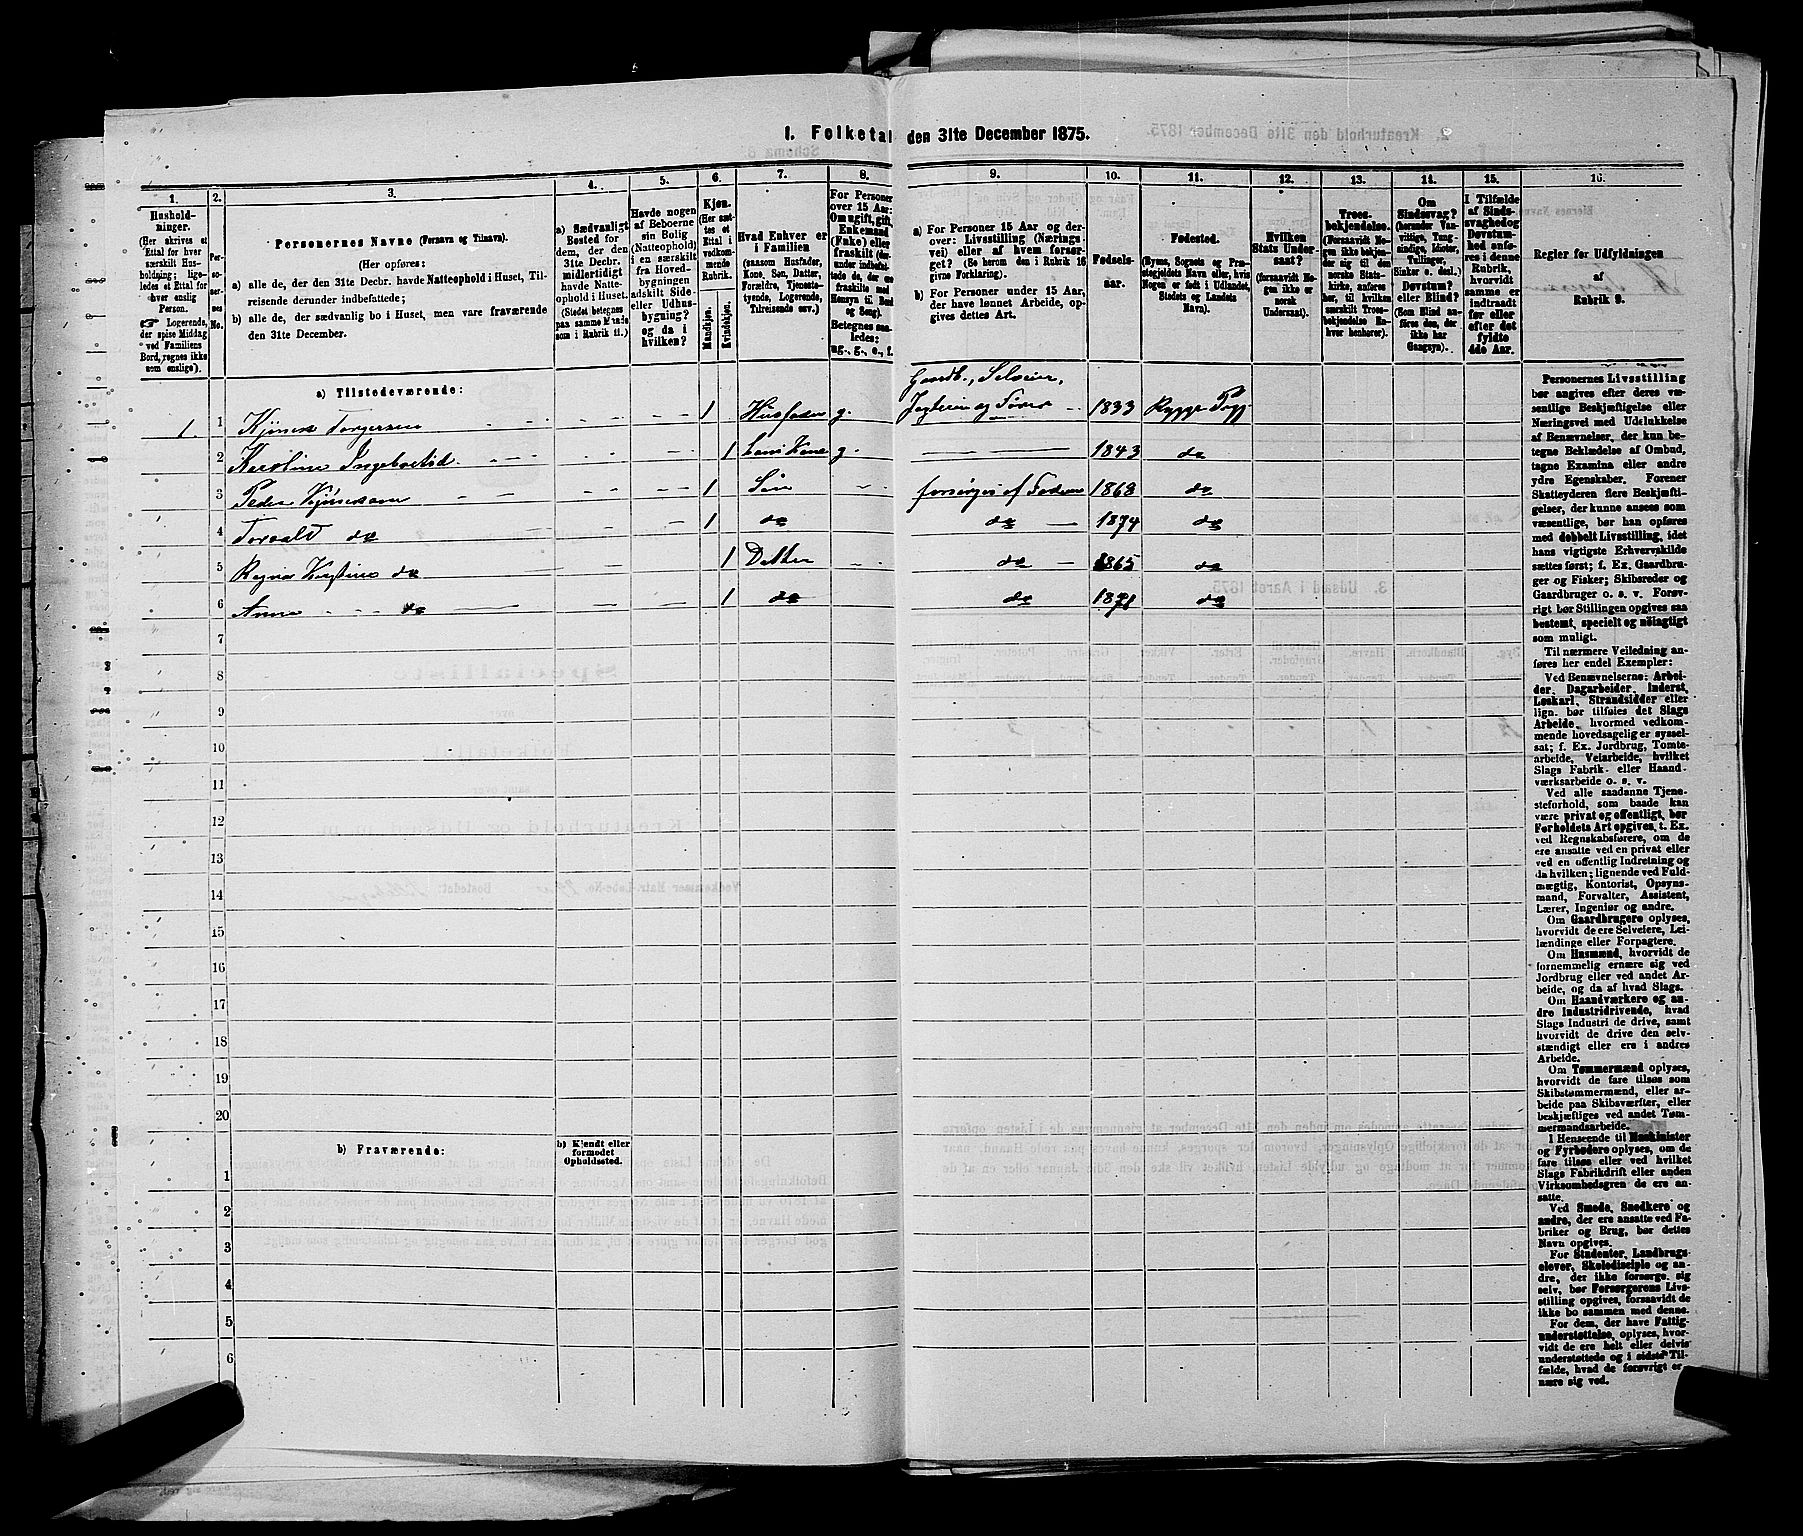 1. Folketal den 31te December 1875.
1.
2.
3.
4.
5.
6.
7.
8.
9.
10.
11.
12.
13.
14.
15.
16.
Hushold-
ninger.
(Her skrives et
Ettal for hver
særskilt Hus-
holdning; lige-
ledes et Ettal for
hver enslig
Person.
☞ Logerende,
der spise Middag
ved Familiens
Bord, regnes ikke
som enslige).
Per-
so-
ner-
nes
No.
Personernes Navne (Fornavn og Tilnavn).
(Her opføres:
a) alle de, der den 31te Decbr. havde Natteophold i Huset, Til-
reisende derunder indbefattede;
b) alle de, der sædvanlig bo i Huset, men vare fraværende
den 31te December.
a) Sædvanligt
Bosted for
dem, der den
31te Decbr.
midlertidigt
havde Natte-
ophold i Huset.
(Stedet betegnes
paa samme Maade
som i Rubrik 11.)
Havde nogen
af Beboerne
sin Bolig
(Natteophold)
i en særskilt
fra Hoved-
bygningen
adskilt Side-
eller Udhus-
bygning?
og da i
hvilken?
Kjøn.
(Her sæt-
tes et
Ettal i
vedkom-
mende
Rubrik.
Mandkjøn.
Kvindekjøn.
Hvad Enhver er
i Familien
(saasom Husfader,
Kone, Søn, Datter,
Forældre, Tjeneste-
tyende, Logerende,
Tilreisende osv.)
For Personer
over 15 Aar:
Om ugift, gift,
Enkemand
(Enke) eller
fraskilt (der-
under indbefat-
tede de, der ere
fraskilte med
Hensyn til Bord
og Seng).
Betegnes saa-
ledes:
ug., g., e., f.
a) For Personer 15 Aar og der-
over: Livsstilling (Nærings-
vei) eller af hvem forsør-
get? (Se herom den i Rubrik 16
givne Forklaring).
b) For Personer under 15 Aar,
der have lønnet Arbeide, op-
gives dettes Art.
Fødsels-
aar.
Fødested.
(Byens, Sognets og Præ-
stegjeldets Navn eller, hvis
Nogen er født i Udlandet,
Stedets og Landets
Navn).
Hvilken
Stats Under-
saat?
(forsaavidt No-
gen ikke er
norsk
Undersaat).
Troes-
bekjendelse.
(Forsaavidt No-
gen ikke bekjen-
der sig til den
norske Stats-
kirke, anføres
her, til hvilken
særskilt Troes-
bekjendelse En-
hver henhører).
Om
Sindssvag?
(herunder Van-
vittige, Tung-
sindige, Idioter,
Tullinger,
Sinker o. desl.)
Døvstum?
eller Blind?
(Som Blind an-
føres den, der
ikke har
Gangsyn).
I Tilfælde
af Sinds-
svaghed og
Døvstum-
hed anfø-
res i denne
Rubrik,
hvorvidt
samme er
indtraadt
før eller
efter det
fyldte
4de Aar.
Regler for Udfyldningen
af
Rubrik 9.
a) Tilstedeværende:
Gaardb., Selveier,
1. 1 Kjønik Torgersen 1 Husfader g. Jagteier og Fører 1833 Rygge Pgj
2 Karoline Ingebretsd. 1 hans Kone g. 1843 do
3 Peder Kjøniksen 1 Søn forsørges af Faderen 1868 do
4 Torvald do 1 do do 1874 do
5 do 1 Datter do 1865 do
6 Anna do 1 do do 1871 do
7
8
9
10
11
12
13
14
15
16
17
18
19
20
b) Fraværende:
b) Kjendt eller
formodet
Opholdssted.
1
2
3
4
5
6
Personernes Livsstilling
bør angives efter deres væ-
sentlige Beskjæftigelse eller
Næringsvei med Udelukkelse
af Benævnelser, der kun be-
tegne Beklædelse af Ombud,
tagne Examina eller andre
ydre Egenskaber. Forener
Skatteyderen flere Beskjæfti-
gelser, der kunne ansees som
væsentlige, bør han opføres
med dobbelt Livsstilling, idet
hans vigtigste Erhvervskilde
sættes først; f. Ex. Gaardbru-
ger og Fisker; Skibsreder og
Gaardbruger o. s. v. Forøv-
rigt bør Stillingen opgives saa
bestemt, specielt og nöiagtigt
som muligt.
Til nærmere Veiledning an-
føres her endel Exempler:
Ved Benævnelserne: Arbei-
der, Dagarbeider, Inderst,
Løskarl, Strandsidder eller
lign. bør tilføies det Slags
Arbeide, hvormed vedkom-
mende hovedsagelig er syssel-
sat; f. Ex. Jordbrug, Tomte-
arbeide, Veiarbeide, hvilket
Slags Fabrik- eller Haand-
værksarbeide o. s. v.
Ved alle saadanne Tjene-
steforhold, som baade kan
være privat og offentligt, bør
Forholdets Art opgives, t. Ex.
ved Regnskabsførere, om de
ere ansatte ved en privat eller
ved en offentlig Indretning og
da hvilken; lignende ved Fuld-
mægtig, Kontorist, Opsyns-
mand, Forvalter, Assistent,
Lærer, Ingeniør og andre.
Om Gaardbrugere oplyses,
hvorvidt de ere Selveiere, Lei-
lændinge eller Forpagtere.
Om Husmænd, hvorvidt de
fornemmelig ernære sig ved
Jordbrug eller ved andet Ar-
beide, og da af hvad Slags.
Om Haandværkere og an-
dre Industridrivende, hvad
Slags Industri de drive, samt
hvorvidt de drive den selv-
stændigt eller ere i andres
Arbeide.
Om Tømmermænd oplyses,
hvorvidt de fare tilsøs som
Skibstømmermænd, eller ar-
beide paa Skibsværfter, eller
beskjæftiges ved andet Tøm-
mermandsarbeide.
I Henseende til Maskinister
og Fyrbødere oplyses, om de
fare tilsøs eller ved hvilket
Slags Fabrikdrift eller anden
Virksomhedsgren de ere an-
satte.
Ved Smede, Snedkere og
andre, der ere ansatte ved Fa-
briker og Brug, bør dettes
Navn opgives.
For Studenter, Landbrugs-
elever, Skoledisciple og an-
dre, der ikke forsørge sig
selv, bør Forsørgerens Livs-
stilling opgives, forsaavidt de
ikke bo sammen med denne.
For dem, der have Fattig-
understøttelse, oplyses, hvor-
vidt de ere helt eller delvis
understøttede og i sidste Til-
fælde, hvad de forøvrigt er-
nære sig ved.